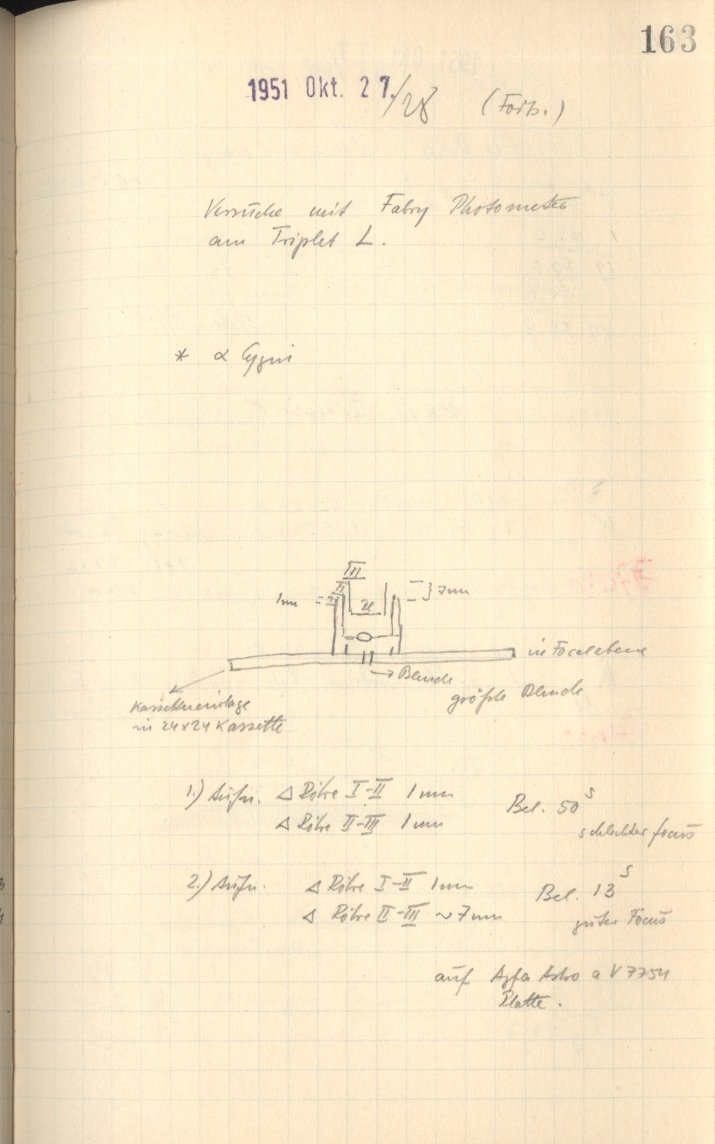 163
1951 Okt. 27./28 (Forts.)
Versuche mit Fabry Photometer
am Triplet L.
* α Cygni
III
II
1mm
} 7mm
in Focalebene
→ Blende
größte Blende
Kassetteneinlage
in 24x24 Kassette
1.) Aufn. Δ Röhre I-II 1mm Bel. 50 s
Δ Röhre II-III 1mm schlechter focus
2.) Aufn. Δ Röhre I-II 1mm Bel. 13 s
Δ Röhre II-III ~7mm guter Focus
auf Agfa Astro a V 7754
Platte.